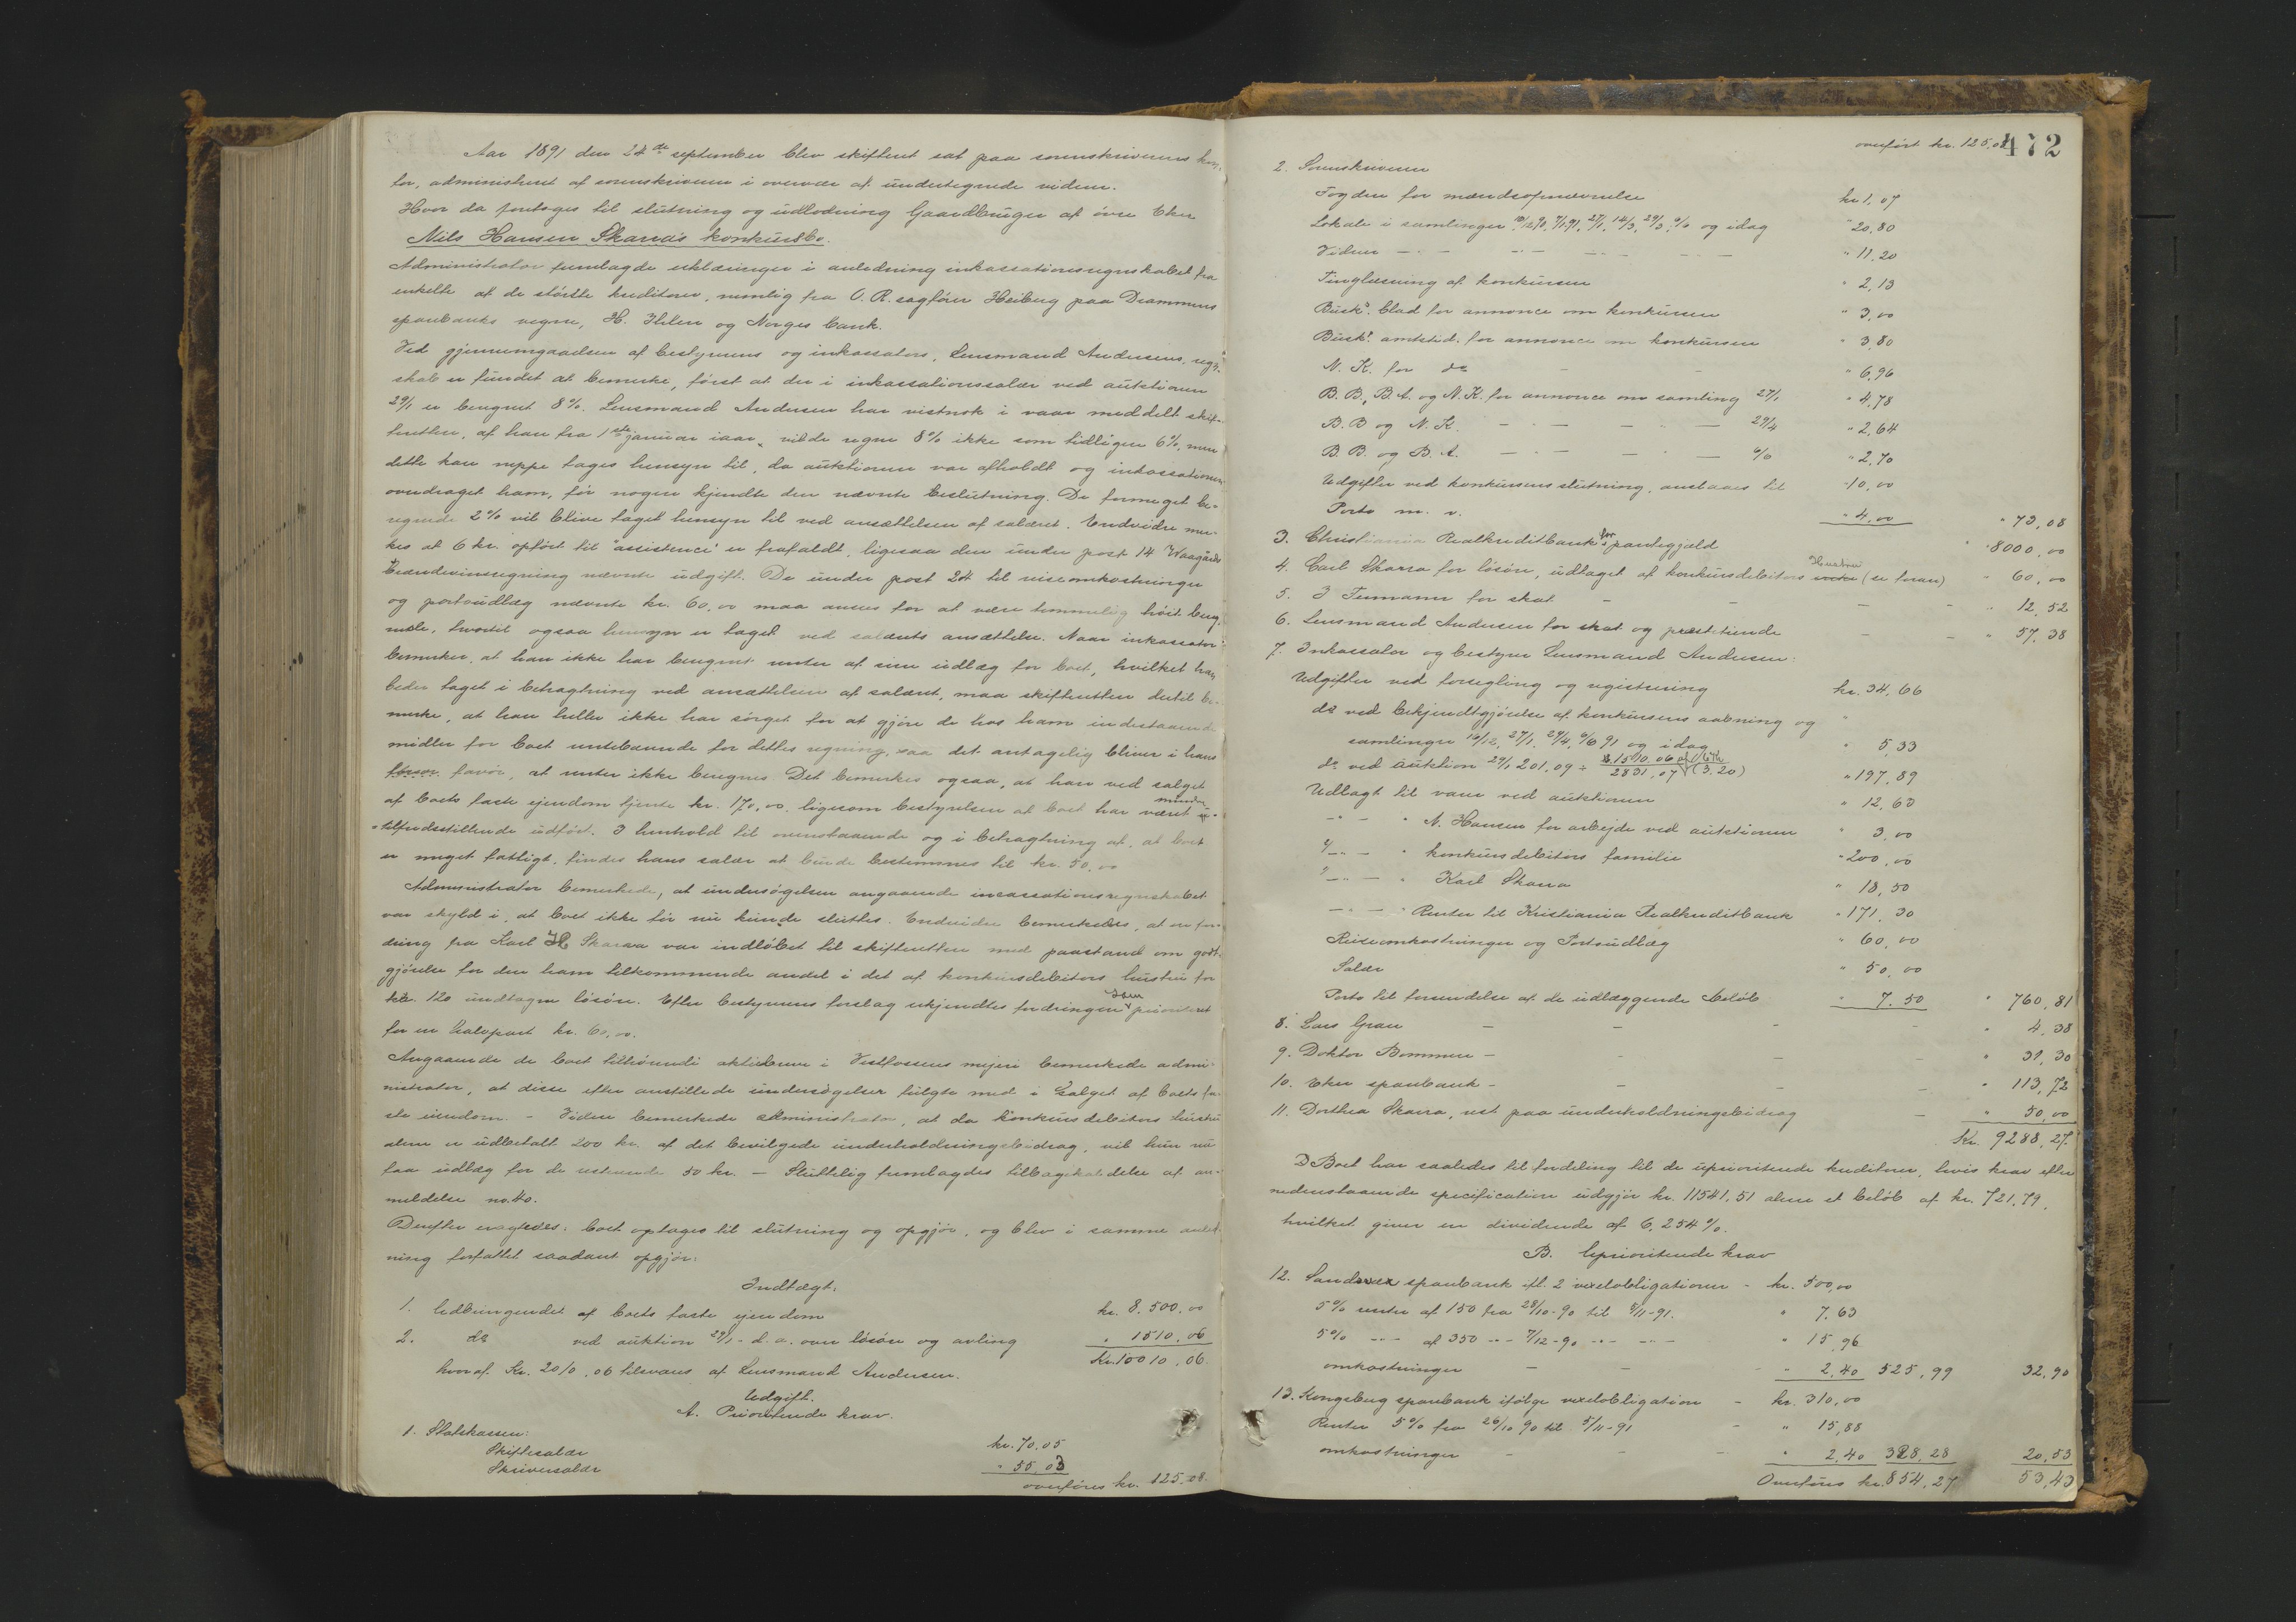 Aar 1891 den 24de september blev skifteret sat paa sorenskriverens kon-
tor, administreret af sorenskriveren i overvær af undertegnede vidner.
Hvor da foretoges til slutning og udlodning Gaardbruger af øvre Eker
Nils Hansen Skaraas konkursbo.
Administrator fremlagde erklæringer i anledning inkassationsregnskabet fra
enkelte af de største kreditorer, nemlig fra O. R. sagfører Heiberg paa Drammens
sparebanks vegne, H. Ihlen og Norges bank.
Ved gjennemgaaelsen af bestyrerens og inkassators, Lensmand Andersens, regn-
skab er fundet at bemerke, først at der i inkassationssalær ved auktionen
29/1 er beregnet 8%. Lensmand Andersen har vistnok i vaar meddelt skif-
teretten, at han fra 1ste januar iaar vilde regne 8% ikke som tidligere 6%, men
dette kan neppe tages hensyn til, da auktionen var afholdt og inkassationen
overdraget ham, før nogen kjendte den nævnte beslutning. De formeget be-
regnede 2% vil blive taget hensyn til ved ansættelsen af salæret. Endvidere mer-
kes at 6 kr. opført til "assistence" er frafaldt, ligesaa den under post 14 Waagaards
Brændevinsregning nævnte udgift. De under post 24 til reiseomkostninger
og portoudlæg nævnte kr. 60,00 maa ansees for at være temmelig høit bereg-
nede, hvortil ogsaa hensyn er taget ved salærets ansættelse. Naar inkassator
bemerker, at han ikke har beregnet renter af sine udlæg for boet, hvilket han
beder taget i betragtning ved ansættelsen af salæret, maa skifteretten dertil be-
merke, at han heller ikke har sørget for at gjøre de hos ham indestaaende
midler for boet rentebærende for dettes regning, saa det antagelig bliver i hans
favør, at renter ikke beregnes. Det bemerkes ogsaa, at han ved salget
af boets faste ejendom tjente kr. 170,00 ligesom bestyrelsen af boet har været mindre
tilfredsstillende udført. I henhold til ovenstaaende og i betragtning af, at boet
er meget fattigt, findes hans salær at burde bestemmes til kr. 50,00
Administrator bemerkede, at undersøgelsen angaaende incassationsregnskabet
var skyld i, at boet ikke før nu kunde sluttes. Endvidere bemerkedes, at en for-
dring fra Karl H Skaraa var indløbet til skifteretten med paastand om godt-
gjørelse for den ham tilkommende andel i det af konkursdebitors hustru for
kr. 120 undtagne løsøre. Efter bestyrerens forslag erkjendtes fordringen som prioriteret
for en halvpart kr. 60,00.
Angaaende de boet tilhørende aktiebreve i Vestfossens mejeri bemerkede admi-
nistrator, at disse efter anstillede undersøgelser fulgte med i Salget af boets fa-
ste eiendom. - Videre bemerkede administrator, at da konkursdebitors hustru
alene er udbetalt 200 kr. af det bevilgede underholdningsbidrag, vil hun nu
faa udlæg for de resterende 50 kr. - Sluttelig fremlagdes tilbagekaldelse af an-
meldelse no. 40.
Derefter eragtedes: boet optages til slutning og opgjør, og blev i samme anled-
ning forfattet saadant opgjør:
Indtægt.
1. Udbringendet af boets faste ejendom kr. 8.500,00
2. do ved auktion 29/1 d. a. over løsøre og avling " 1510,06
Kr. 10010,06.
hvoraf Kr. 2010,06 tilsvares af Lensmand Andersen.
Udgift.
A. Prioriterede krav.
1. Statskassen:
Skiftesalær kr. 70,05
Skriversalær " 55,03
overføres kr. 125,08.
472
overført kr. 125,08
2. Sorenskriveren
Fogden for mændsopnævnelse kr 1,07
Lokale i samlinger 10/12 90, 7/1 91, 27/1, 14/3, 29/3, 6/6 og idag " 20,80
Vidner " 11,20
Tinglæsning af konkursen " 2,13
Busk. blad for annonce om konkursen " 3,00
Busk. amtstid. for annonce om konkursen " 3,80
N. K. for do " 6,96
B. B., B. A. og N. K. for annonce om samling 27/1 " 4,78
B. B og N. K. 29/4 " 2,64
B. B. og B. A. 6/6 " 2,70
Udgifter ved konkursens slutning, anslaaes til 10,00
Porto m. v. " 4,00 " 73,08
3. Christiania Realkreditbank for pantegjæld " 8000,00
4. Carl Skaraa for løsøre, udtaget af konkursdebitors Hustru (se foran) " 60,00
5. I Termann for skat " 12,52
6. Lensmand Andersen for skat og præstetiende " 57,38
7. Inkassator og bestyrer Lensmand Andersen:
Udgifter ved forsegling og registrering kr. 34,66
do ved bekjendtgjørelse af konkursens aabning og
samlinger 16/12, 27/1, 29/4, 6/6 91 og idag " 5,33
do ved auktion 29/1 201,09 ÷ (3,20) " 197,89
Udlagt til varer ved auktionen " 12,63
" N. Hansen for arbejde ved auktionen " 3,00
" konkursdebitors familie " 200,00
" Karl Skaraa " 18,50
" Renter til Kristiania Realkreditbank " 171,30
Reiseomkostninger og Portoudlæg " 60,00
Salær " 50,00
Porto til forsendelse af de udlæggende beløb " 7.50 " 760,81
8. Lars Gran " 4,38
9. Doktor Bommen " 31,30
10. Eker sparebank " 113,72
11. Dorthea Skaraa, rest paa underholdningsbidrag " 50,00
Kr. 9288,27.
Boet har saaledes til fordeling til de uprioriterede kreditorer, hvis krav efter
nedenstaaende specification udgjør kr. 11541,51 alene et beløb af kr. 721,79,
hvilket giver en dividende af 6,254%.
B. Uprioriterede krav
12. Sandsvær sparebank ifl. 2 vexelobligationer - kr. 500,00
5% renter af 150 fra 28/10-90 til 5/11-91. " 7.63
5% af 350 7/12-90 " 15,96
omkostninger " 2,40 525,99 32,90
13. Kongsberg sparebank ifølge vexelobligation - kr. 310,00
Renter 5% fra 26/10 90 til 5/11-91 " 15,88
omkostninger " 2,40 328,28 20,53
Overføres kr. 854,27 53,43